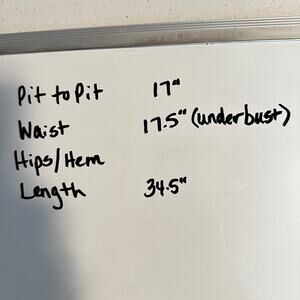 Pit to Pit 17"
Waist 17.5" (underbust)
Hips/Hem
Length 34.5"